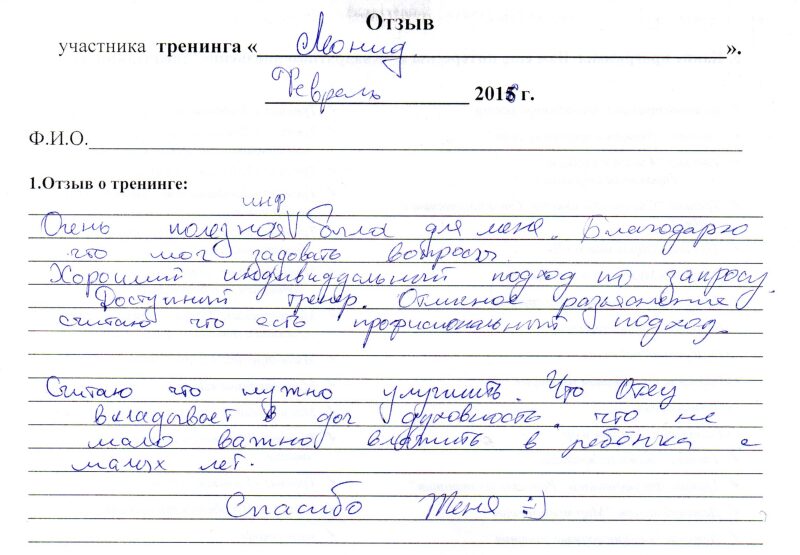 Отзыв
участника тренинга «Леонид».
Февраль 2018 г.
Ф.И.О.
1.Отзыв о тренинге:
инф
Очень полезная V была для меня. Благодарю
что мог задовать вопросы.
Хороший индивиддальный подход по запросу.
Доступный тренер. Отличное разъяснение
считаю что есть професиональный подход.
Считаю что нужно улучшить. Что Отец
вкладывает в доч духовность. что не
мало важно вложить в ребёнка с
малых лет.
Спасибо Женя :-)